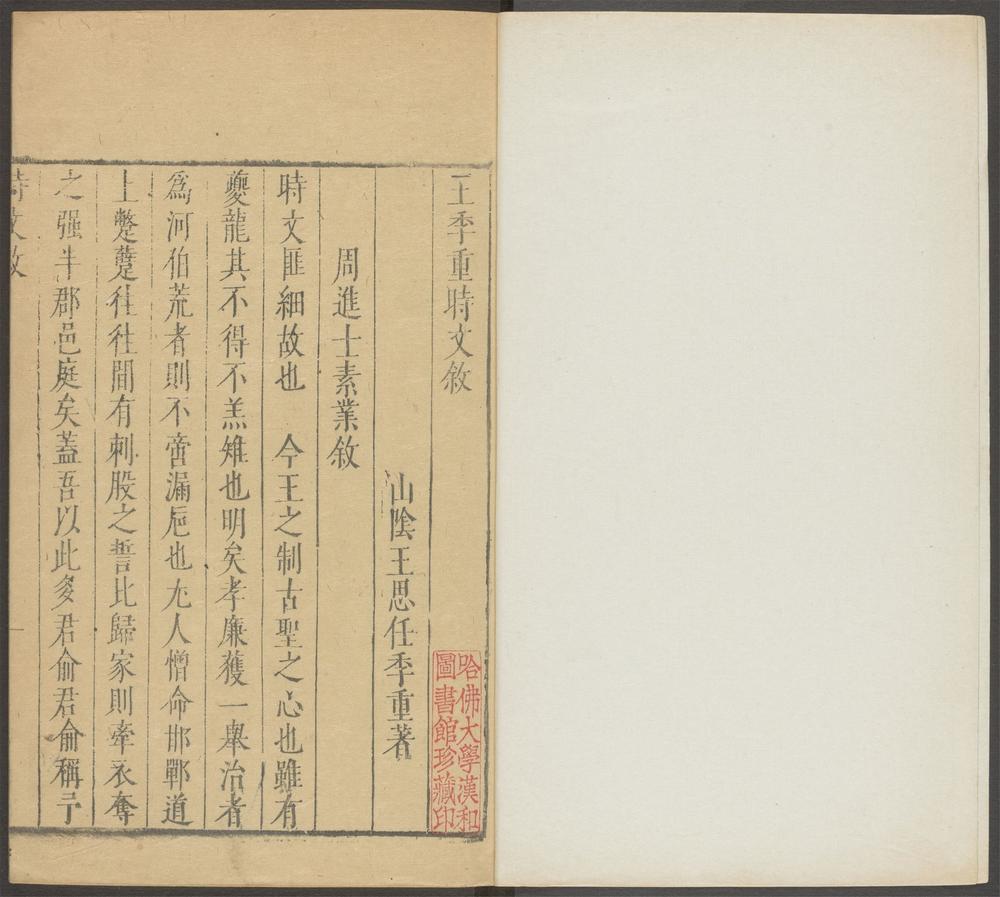 王季重時文敘
山陰王思任季重著
周進士素業敘
時文匪細故也　今王之制古聖之心也雖有
夔龍其不得不羔雉也明矣孝廉獲一舉治者
爲河伯荒者則不啻漏巵也尢人憎命邯鄲道
上蹩躠徃徃間有刺股之誓比歸家則牽衣奪
之强半郡邑庭矣蓋吾以此多君俞君俞稱予
時文敘
哈佛大學漢和
圖書館珍藏印